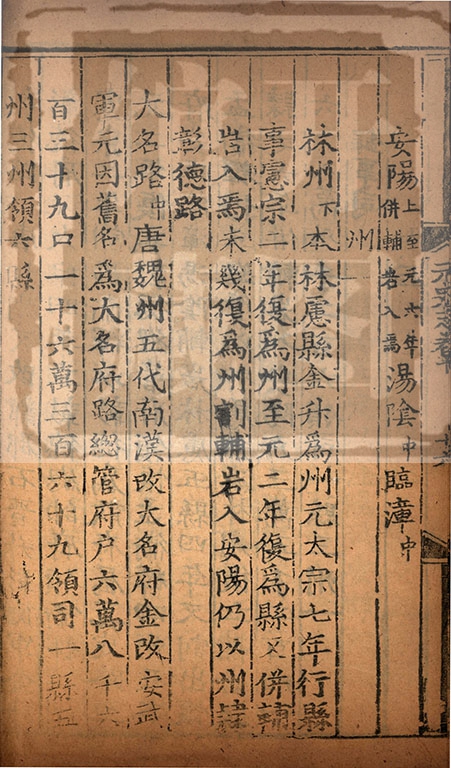 安陽上至元六年併輔岩入焉湯陰中臨漳中
州
林州下本林慮縣金升爲州元太宗七年行縣
事憲宗二年復爲州至元二年復爲縣又併輔
岩入焉未幾復爲州割輔岩入安陽仍以州隸
彰德路
大名路中唐魏州五代南漢改大名府金改安武
軍元因舊名爲大名府路總管府户六萬八千六
百三十九口一十六萬三百六十九領司一縣五
州三州領六縣